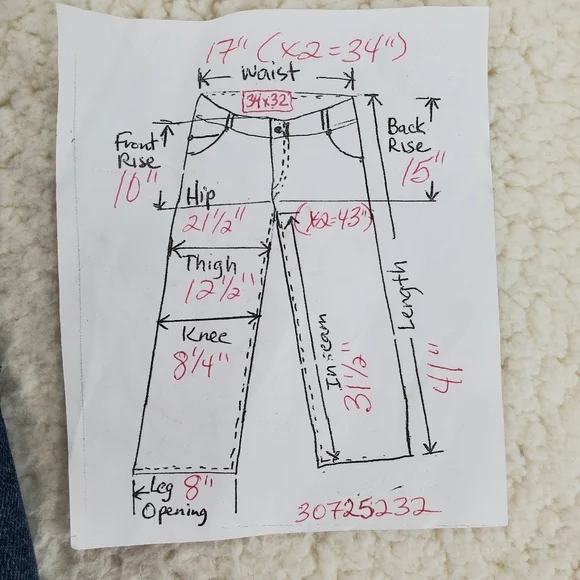 17" (x2=34")
Waist
34x32
Front
Rise
10"
Back
Rise
15"
Hip
21 1/2"
(x2=43")
Thigh
12 1/2"
Knee
8 1/4"
Inseam
31 1/2"
Length
41"
Leg
Opening
8"
30725232